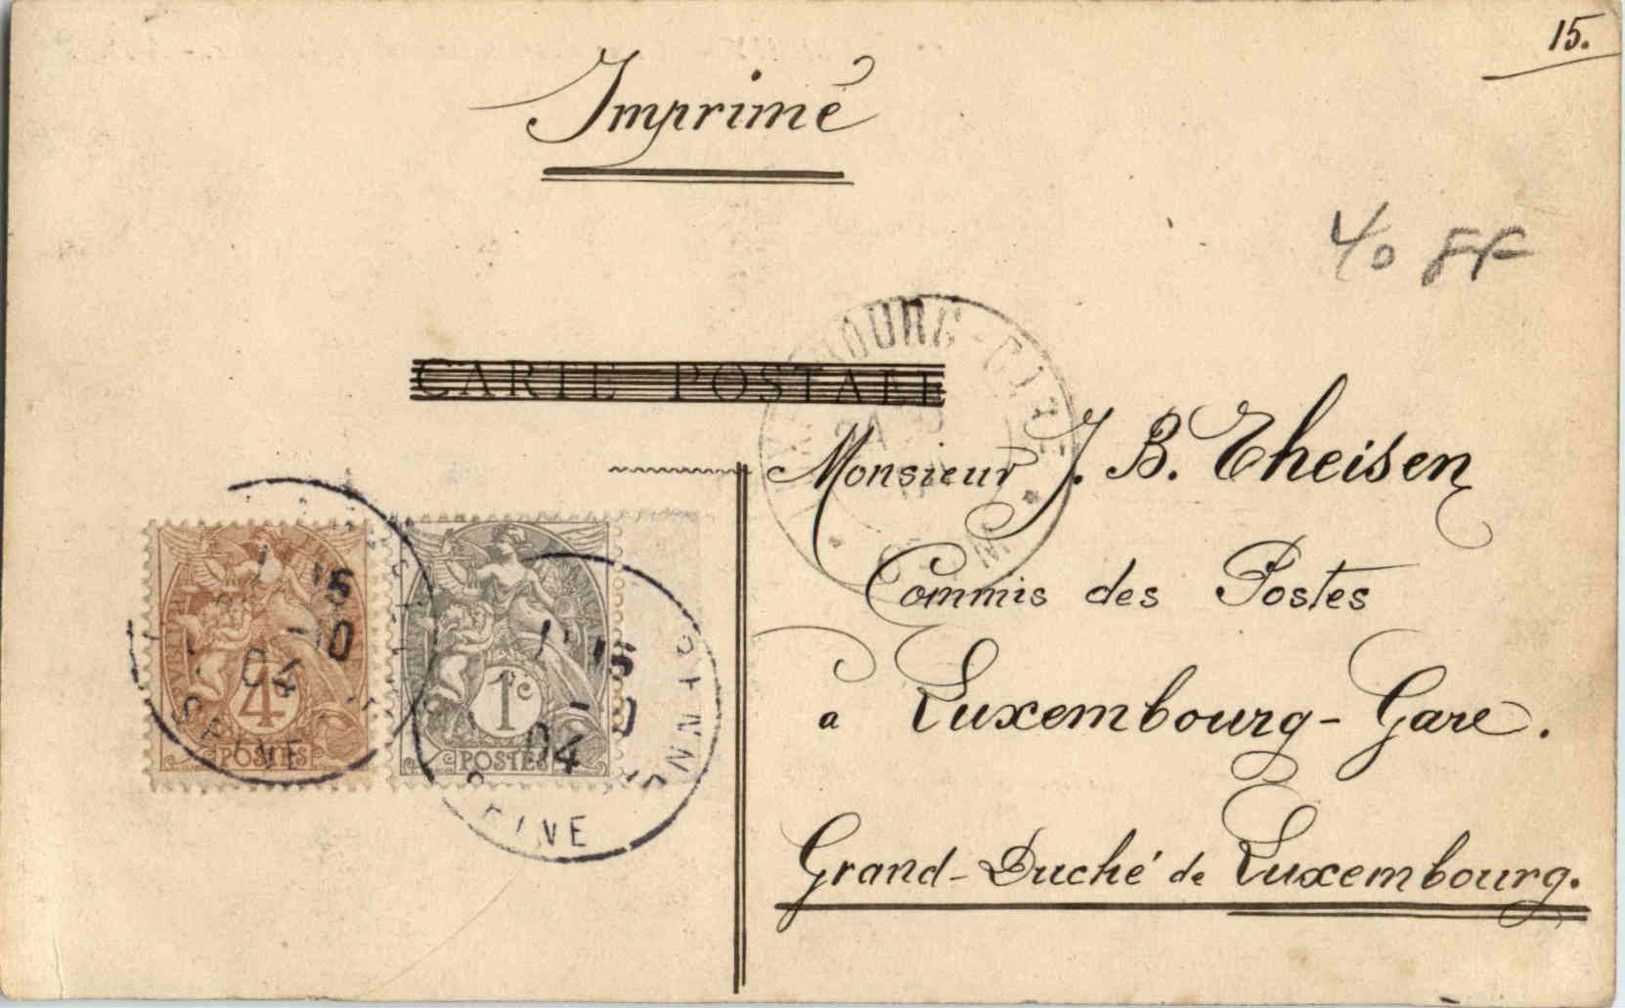 15.
Imprimé
40 FF
CARTE POSTALE
LUXEMBOURG-GARE
Monsieur J. B. Theisen
Commis des Postes
à Luxembourg-Gare.
Grand-Duché de Luxembourg.
4c
POSTES
1c
POSTES
15
-10
04
SEINE
15
04
SEINE